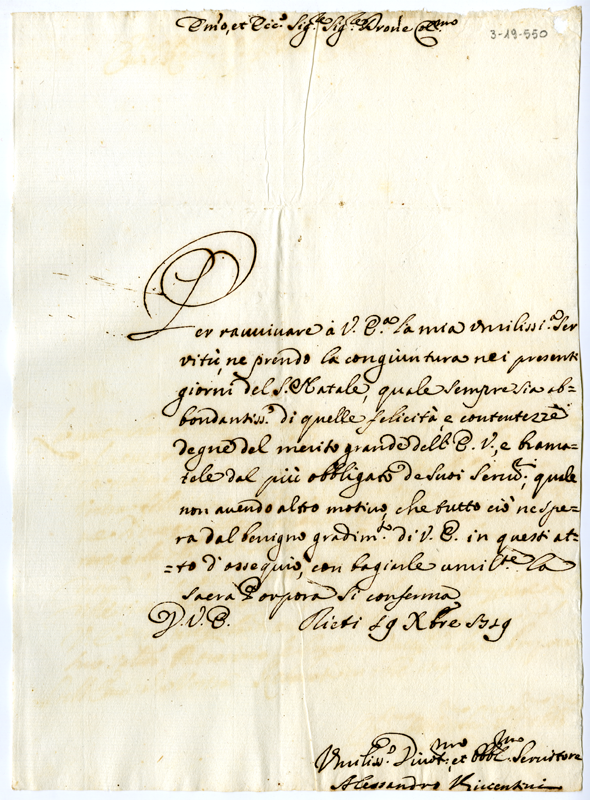 Em̃o, et Rev.º Sig.re Sig.re Prone Col.mo
3-19-550
Per ravvivare à V. E.za la mia umiliss.a Ser
vitù, ne prendo la congiuntura nei presenti
giorni del S. Natale, quale sempre sia ab=
bondantiss.o di quelle felicità, e contentezze
degne del merito grande dell'E. V., e brama=
tele dal più obbligato de suoi Servit.ri; quale
non avendo altro motivo, che tutto ciò ne spe=
ra dal benigno gradim.to di V. E. in questi at=
=to d'ossequio, con bagiarle umilte. la
Sacra Porpora si conferma
D. V. E. Rieti 19 Xbre 1719
Umiliss.o Divot.mo et Obbl.mo Servitore
Alessandro Vincentini